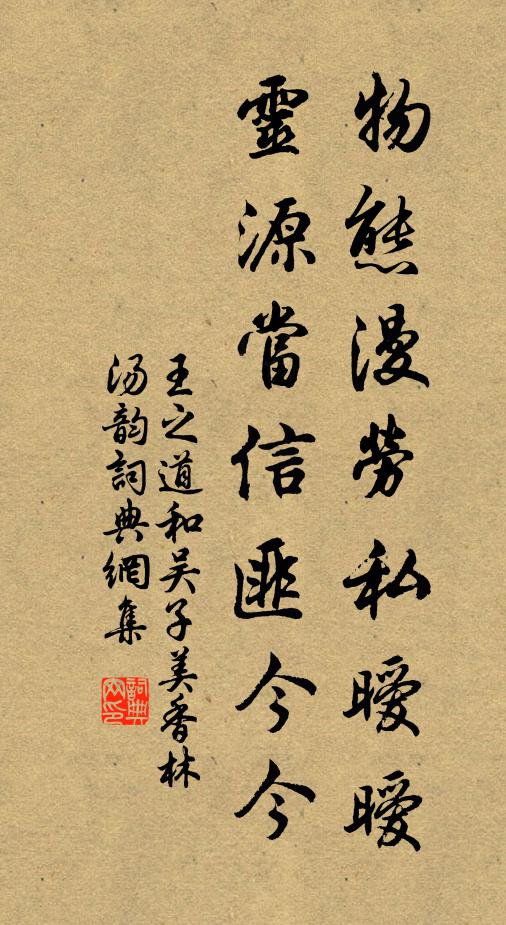 物態漫勞私曖曖
靈源當信匪今今
王之道和吴子美香林
汤韵詞典網集
詞典
网印